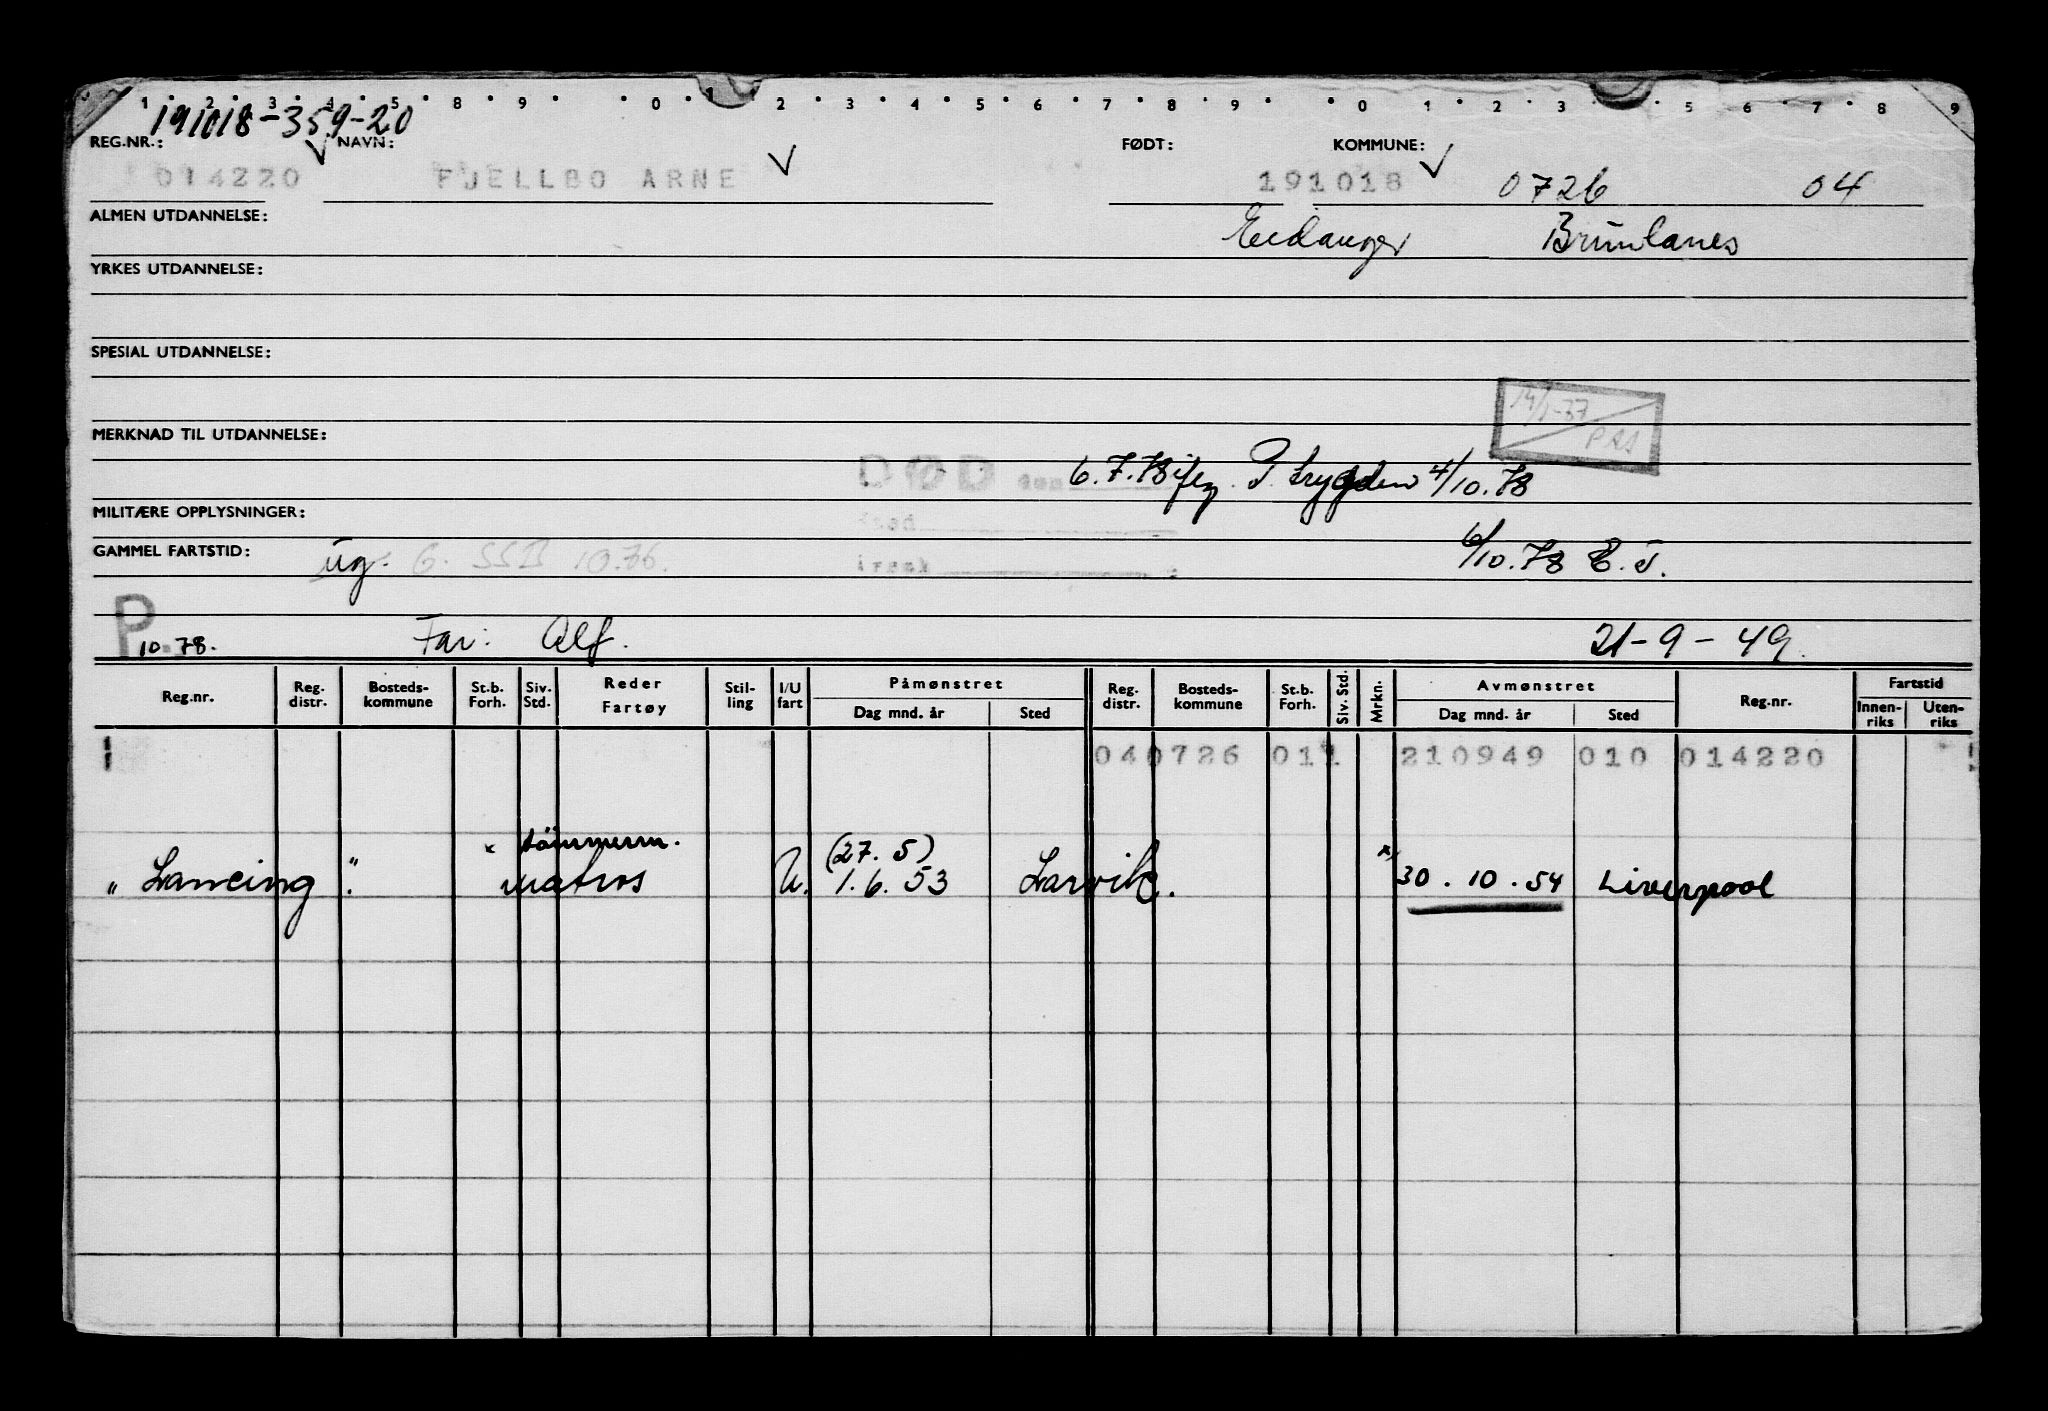 1 2 3 4 5 8 9 0 1 2 3 4 5 6 7 8 9 0 1 2 3 5 6 7 8 9
191018-359-20
REG.NR.: NAVN: FØDT: KOMMUNE:
014220 FJELLBO ARNE 191018 0726 04
ALMEN UTDANNELSE: Eidanger Brunlanes
YRKES UTDANNELSE:
SPESIAL UTDANNELSE:
14/1-37
MERKNAD TIL UTDANNELSE:
DØD den 6.7.78 ifлg. P. trygden 4/10.78
MILITÆRE OPPLYSNINGER:
GAMMEL FARTSTID: ug. G. SSB 10.76. 6/10.78 E.J.
P
10.78. Far: Alf. 21-9-49.
Reg.nr. Reg. distr. Bosteds- kommune St.b. Forh. Siv. Std. Reder Fartøy Stil- ling I/U fart Påmønstret Dag mnd. år Sted Reg. distr. Bosteds- kommune St.b. Forh. Siv. Std. Mrkn. Avmønstret Dag mnd. år Sted Reg.nr. Fartstid Innen- riks Uten- riks
040726 011 210949 010 014220
x tömmerm. (27. 5)
"Lancing". matros U. 1.6.53 Larvik. x) 30.10.54 Liverpool